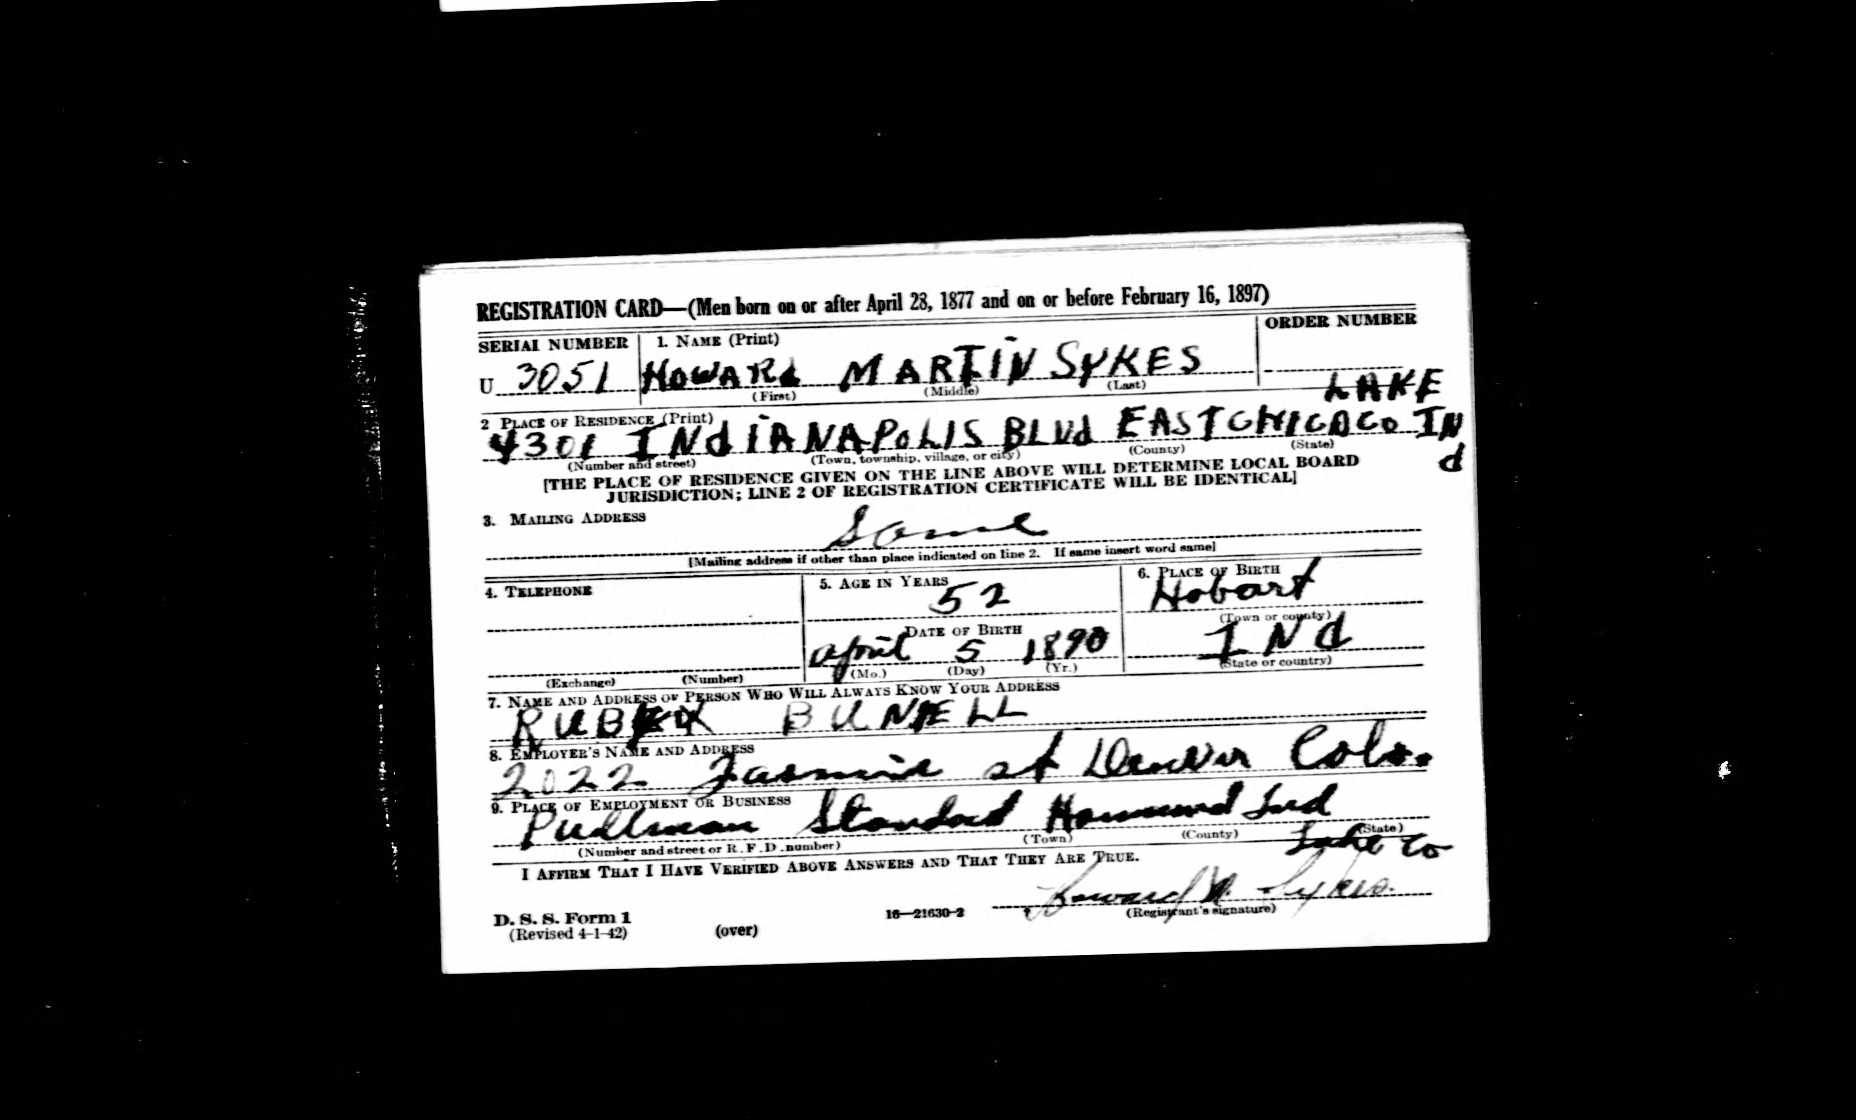 REGISTRATION CARD—(Men born on or after April 28, 1877 and on or before February 16, 1897)
SERIAL NUMBER 1. NAME (Print) ORDER NUMBER
U 3051 HOWARd MARTIN SYKES
(First) (Middle) (Last)
LAKE
2 PLACE OF RESIDENCE (Print)
4301 INdIANAPOLIS BLVd EAST CHICAGO IN
d
(Number and street) (Town, township, village, or city) (County) (State)
[THE PLACE OF RESIDENCE GIVEN ON THE LINE ABOVE WILL DETERMINE LOCAL BOARD
JURISDICTION; LINE 2 OF REGISTRATION CERTIFICATE WILL BE IDENTICAL]
3. MAILING ADDRESS
Same
[Mailing address if other than place indicated on line 2. If same insert word same]
4. TELEPHONE 5. AGE IN YEARS 6. PLACE OF BIRTH
52 Hobart
DATE OF BIRTH (Town or county)
April 5 1890 INd
(Mo.) (Day) (Yr.) (State or country)
(Exchange) (Number)
7. NAME AND ADDRESS OF PERSON WHO WILL ALWAYS KNOW YOUR ADDRESS
BUNELL
8. EMPLOYER'S NAME AND ADDRESS
2022 Jasmine st Denver Colo.
9. PLACE OF EMPLOYMENT OR BUSINESS
Pullman Standard Hammond Ind
(Number and street or R. F. D. number) (Town) (County) (State)
Lake Co
I AFFIRM THAT I HAVE VERIFIED ABOVE ANSWERS AND THAT THEY ARE TRUE.
Howard M. Sykes.
(Registrant's signature)
D. S. S. Form 1
(Revised 4-1-42) (over) 16—21630-2